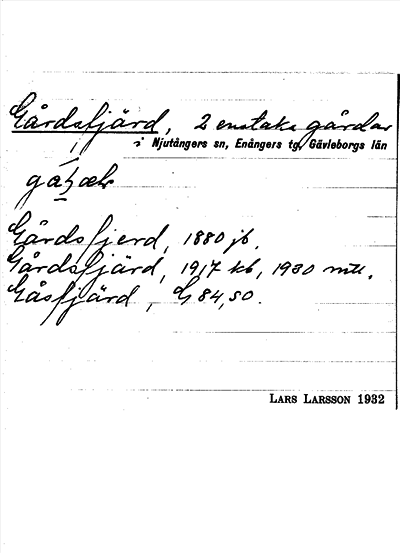 Gårdsfjärd, 2 enstaka gårdar
i Njutångers sn, Enångers tg, Gävleborgs län
Gårdsfjerd, 1880 jb.
Gårdsfjärd, 1917 kb, 1930 mtl.
Gåsfjärd, G 84, 50.
LARS LARSSON 1932